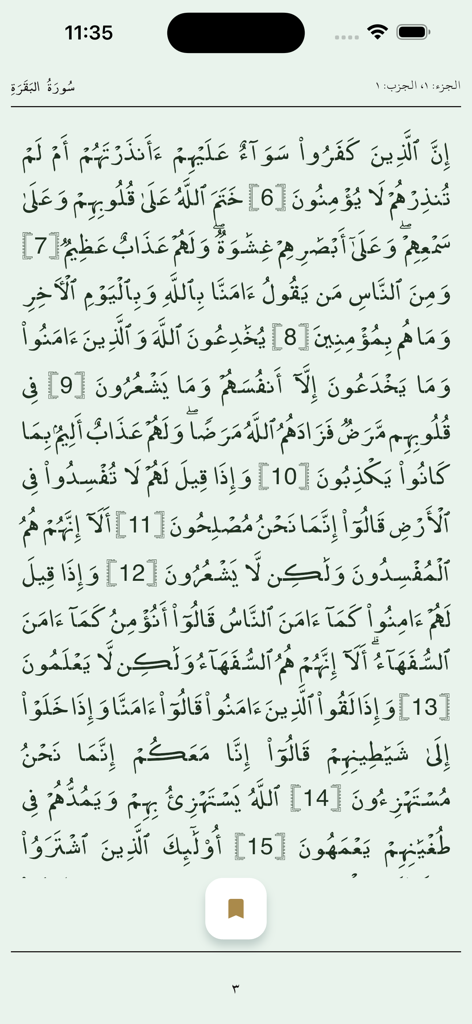 11:35
سُورَةُ البَقَرَةِ
الجزء: ١، الحزب: ١
إِنَّ ٱلَّذِينَ كَفَرُوا۟ سَوَآءٌ عَلَيْهِمْ ءَأَنذَرْتَهُمْ أَمْ لَمْ
تُنذِرْهُمْ لَا يُؤْمِنُونَ [6] خَتَمَ ٱللَّهُ عَلَىٰ قُلُوبِهِمْ وَعَلَىٰ
سَمْعِهِمْ ۖ وَعَلَىٰٓ أَبْصَٰرِهِمْ غِشَٰوَةٌ ۖ وَلَهُمْ عَذَابٌ عَظِيمٌ [7]
وَمِنَ ٱلنَّاسِ مَن يَقُولُ ءَامَنَّا بِٱللَّهِ وَبِٱلْيَوْمِ ٱلْـَٔاخِرِ
وَمَا هُم بِمُؤْمِنِينَ [8] يُخَٰدِعُونَ ٱللَّهَ وَٱلَّذِينَ ءَامَنُوا۟
وَمَا يَخْدَعُونَ إِلَّآ أَنفُسَهُمْ وَمَا يَشْعُرُونَ [9] فِى
قُلُوبِهِم مَّرَضٌ فَزَادَهُمُ ٱللَّهُ مَرَضًا ۖ وَلَهُمْ عَذَابٌ أَلِيمٌۢ بِمَا
كَانُوا۟ يَكْذِبُونَ [10] وَإِذَا قِيلَ لَهُمْ لَا تُفْسِدُوا۟ فِى
ٱلْأَرْضِ قَالُوٓا۟ إِنَّمَا نَحْنُ مُصْلِحُونَ [11] أَلَآ إِنَّهُمْ هُمُ
ٱلْمُفْسِدُونَ وَلَٰكِن لَّا يَشْعُرُونَ [12] وَإِذَا قِيلَ
لَهُمْ ءَامِنُوا۟ كَمَآ ءَامَنَ ٱلنَّاسُ قَالُوٓا۟ أَنُؤْمِنُ كَمَآ ءَامَنَ
ٱلسُّفَهَآءُ ۗ أَلَآ إِنَّهُمْ هُمُ ٱلسُّفَهَآءُ وَلَٰكِن لَّا يَعْلَمُونَ
[13] وَإِذَا لَقُوا۟ ٱلَّذِينَ ءَامَنُوا۟ قَالُوٓا۟ ءَامَنَّا وَإِذَا خَلَوْا۟
إِلَىٰ شَيَٰطِينِهِمْ قَالُوٓا۟ إِنَّا مَعَكُمْ إِنَّمَا نَحْنُ
مُسْتَهْزِءُونَ [14] ٱللَّهُ يَسْتَهْزِئُ بِهِمْ وَيَمُدُّهُمْ فِى
طُغْيَٰنِهِمْ يَعْمَهُونَ [15] أُو۟لَٰٓئِكَ ٱلَّذِينَ ٱشْتَرَوُا۟
٣